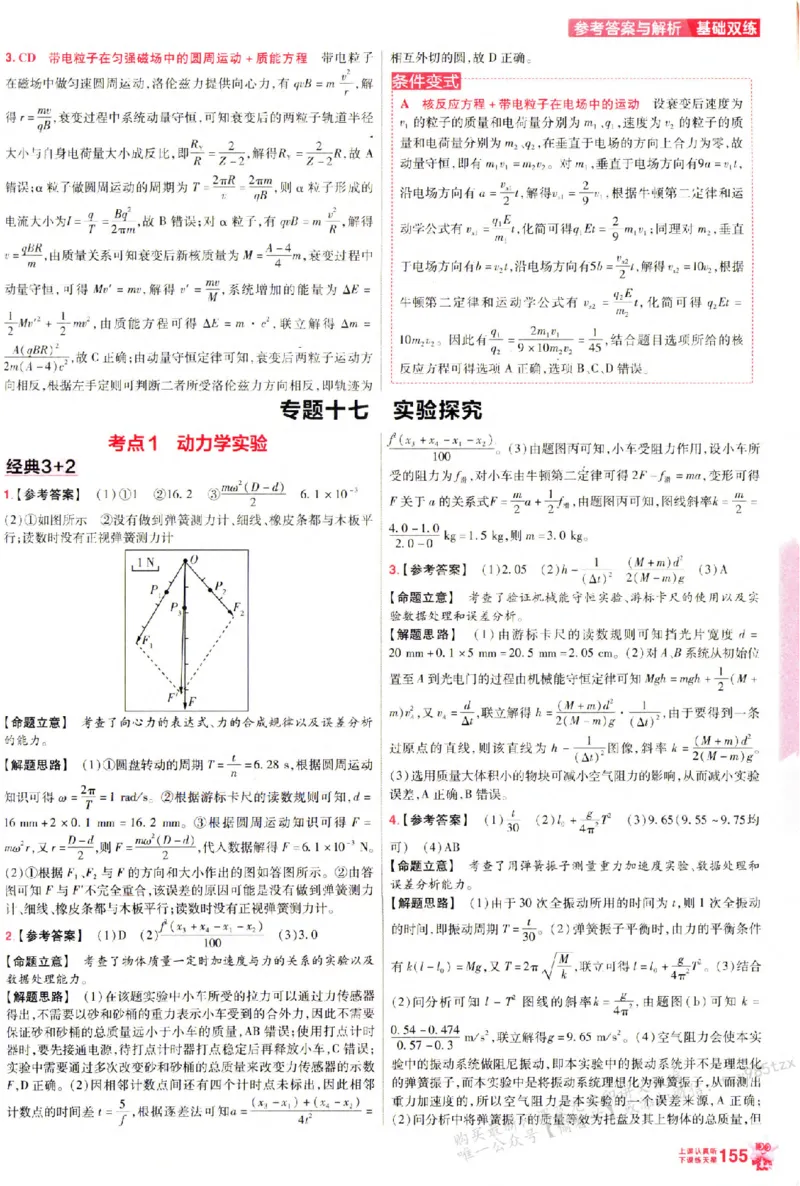 参考答案与解析 基础双练
3.CD 带电粒子在匀强磁场中的圆周运动+质能方程 带电粒子
在磁场中做匀速圆周运动,洛伦兹力提供向心力,有 qvB = m v²/r,解
得 r = mv/qB,衰变过程中系统动量守恒,可知衰变后的两粒子轨道半径
大小与自身电荷量大小成反比,即 R_Y/R = 2/(Z-2),解得R_Y = 2/(Z-2) R,故 A
错误;α粒子做圆周运动的周期为 T = 2πR/v = 2πm/qB,则 α 粒子形成的
电流大小为I = q/T = Bq²/2πm,故 B 错误;对 α 粒子,有 qvB = m v²/R,解得
v = qBR/m,由质量关系可知衰变后新核质量为 M = (A-4)/4 m,衰变过程中
动量守恒,可得 Mv' = mv,解得 v' = mv/M,系统增加的能量为 ΔE =
1/2 Mv'² + 1/2 mv²,由质能方程可得 ΔE = m·c²,联立解得 Δm =
A(qBR)²/2m(A-4)c²,故 C 正确;由动量守恒定律可知,衰变后两粒子运动方
向相反,根据左手定则可判断二者所受洛伦兹力方向相反,即轨迹为
相互外切的圆,故 D 正确。
条件变式
A 核反应方程+带电粒子在电场中的运动 设衰变后速度为
v₁ 的粒子的质量和电荷量分别为 m₁、q₁,速度为 v₂ 的粒子的质
量和电荷量分别为 m₂、q₂,在垂直于电场的方向上合力为零,故
动量守恒,即有 m₁v₁ = m₂v₂。对 m₁,垂直于电场方向有9a = v₁t,
沿电场方向有 a = v_x1/2 t,解得v_x1 = 2/9 v₁,根据牛顿第二定律和运
动学公式有 v_x1 = q₁E/m₁ t,化简可得q₁Et = 2/9 m₁v₁;同理对 m₂,垂直
于电场方向有b = v₂t,沿电场方向有5b = v_x2/2 t,解得 v_x2 = 10v₂,根据
牛顿第二定律和运动学公式有 v_x2 = q₂E/m₂ t,化简可得 q₂Et =
10m₂v₂。因此有 q₁/q₂ = 2m₁v₁/(9×10m₂v₂) = 1/45,结合题目选项所给的核
反应方程可得选项 A 正确,选项 B、C、D 错误。
专题十七 实验探究
考点1 动力学实验
经典3+2
1.【参考答案】 (1)①1 ②16.2 ③mω²(D-d)/2 6.1×10⁻³
(2)①如图所示 ②没有做到弹簧测力计、细线、橡皮条都与木板平
行;读数时没有正视弹簧测力计
1 N
O
P₁
P₂
P₃
F₁
F₂
F'
F
【命题立意】 考查了向心力的表达式、力的合成规律以及误差分析
的能力。
【解题思路】 (1)①圆盘转动的周期 T = t/n = 6.28 s,根据圆周运动
知识可得 ω = 2π/T = 1 rad/s。②根据游标卡尺的读数规则可知,d =
16 mm + 2×0.1 mm = 16.2 mm。③根据圆周运动知识可得 F =
mω²r,又 r = (D-d)/2,则 F = mω²(D-d)/2,代入数据解得 F = 6.1×10⁻³ N。
(2)①根据 F₁、F₂ 与 F 的方向和大小作出的图如答图所示。②由答
图可知 F 与 F'不完全重合,该误差的原因可能是没有做到弹簧测力
计、细线、橡皮条都与木板平行;读数时没有正视弹簧测力计。
2.【参考答案】 (1)D (2)f²(x₃+x₄-x₁-x₂)/100 (3)3.0
【命题立意】 考查了物体质量一定时加速度与力的关系的实验以及
数据处理能力。
【解题思路】 (1)在该题实验中小车所受的拉力可以通过力传感器
得出,不需要以砂和砂桶的重力表示小车受到的合外力,因此不需要
保证砂和砂桶的总质量远小于小车的质量,AB 错误;使用打点计时
器时,要先接通电源,待打点计时器打点稳定后再释放小车,C 错误;
实验中需要通过多次改变砂和砂桶的总质量来改变力传感器的示数
F,D 正确。(2)因相邻计数点间还有四个计时点未标出,因此相邻
计数点的时间差 t = 5/f,根据逐差法可知a = ((x₃-x₁)+(x₄-x₂))/4t² =
f²(x₃+x₄-x₁-x₂)/100。(3)由题图丙可知,小车受阻力作用,设小车所
受的阻力为 f滑,对小车由牛顿第二定律可得 2F - f滑 = ma,变形可得
F 关于 a 的关系式F = m/2 a + 1/2 f滑,由题图丙可知,图线斜率k = m/2 =
(4.0-1.0)/(2.0-0) kg = 1.5 kg,则 m = 3.0 kg。
3.【参考答案】 (1)2.05 (2)h - 1/(Δt)² (M+m)d²/2(M-m)g (3)A
【命题立意】 考查了验证机械能守恒实验、游标卡尺的使用以及实
验数据处理和误差分析。
【解题思路】 (1)由游标卡尺的读数规则可知挡光片宽度 d =
20 mm + 0.1×5 mm = 20.5 mm = 2.05 cm。(2)对 A、B 系统从初始位
置至 A 到光电门的过程由机械能守恒定律可知 Mgh = mgh + 1/2 (M +
m)v_A²,又 v_A = d/Δt,联立解得 h = (M+m)d²/2(M-m)g · 1/(Δt)²,由于要得到一条
过原点的直线,则该直线为 h - 1/(Δt)² 图像,斜率 k = (M+m)d²/2(M-m)g。
(3)选用质量大体积小的物块可减小空气阻力的影响,从而减小实验
误差,A 正确,B 错误。
4.【参考答案】 (1)t/30 (2)l₀ + g/4π² T² (3)9.65(9.55~9.75均
可) (4)AB
【命题立意】 考查了用弹簧振子测量重力加速度实验、数据处理和
误差分析能力。
【解题思路】 (1)由于 30 次全振动所用的时间为 t,则 1 次全振动
的时间,即振动周期 T = t/30。(2)弹簧振子平衡时,由力的平衡条件
有 k(l-l₀) = Mg,又 T = 2π√(M/k),联立可得 l = l₀ + g/4π² T²。(3)结合
(2)问分析可知 l - T² 图线的斜率k = g/4π²,由题图(b)可知 k =
(0.54-0.474)/(0.57-0.3) m/s²,联立解得g = 9.65 m/s²。(4)空气阻力会使本实
验中的振动系统做阻尼振动,即本实验中的振动系统并不是理想化
的弹簧振子,而本实验中是将振动系统理想化为弹簧振子,从而测出
重力加速度的,所以空气阻力是本实验的一个误差来源,A 正确;
(2)问分析中将弹簧振子的质量等效为托盘及其上物体的总质量,但
上课认真听
下课练天星 155